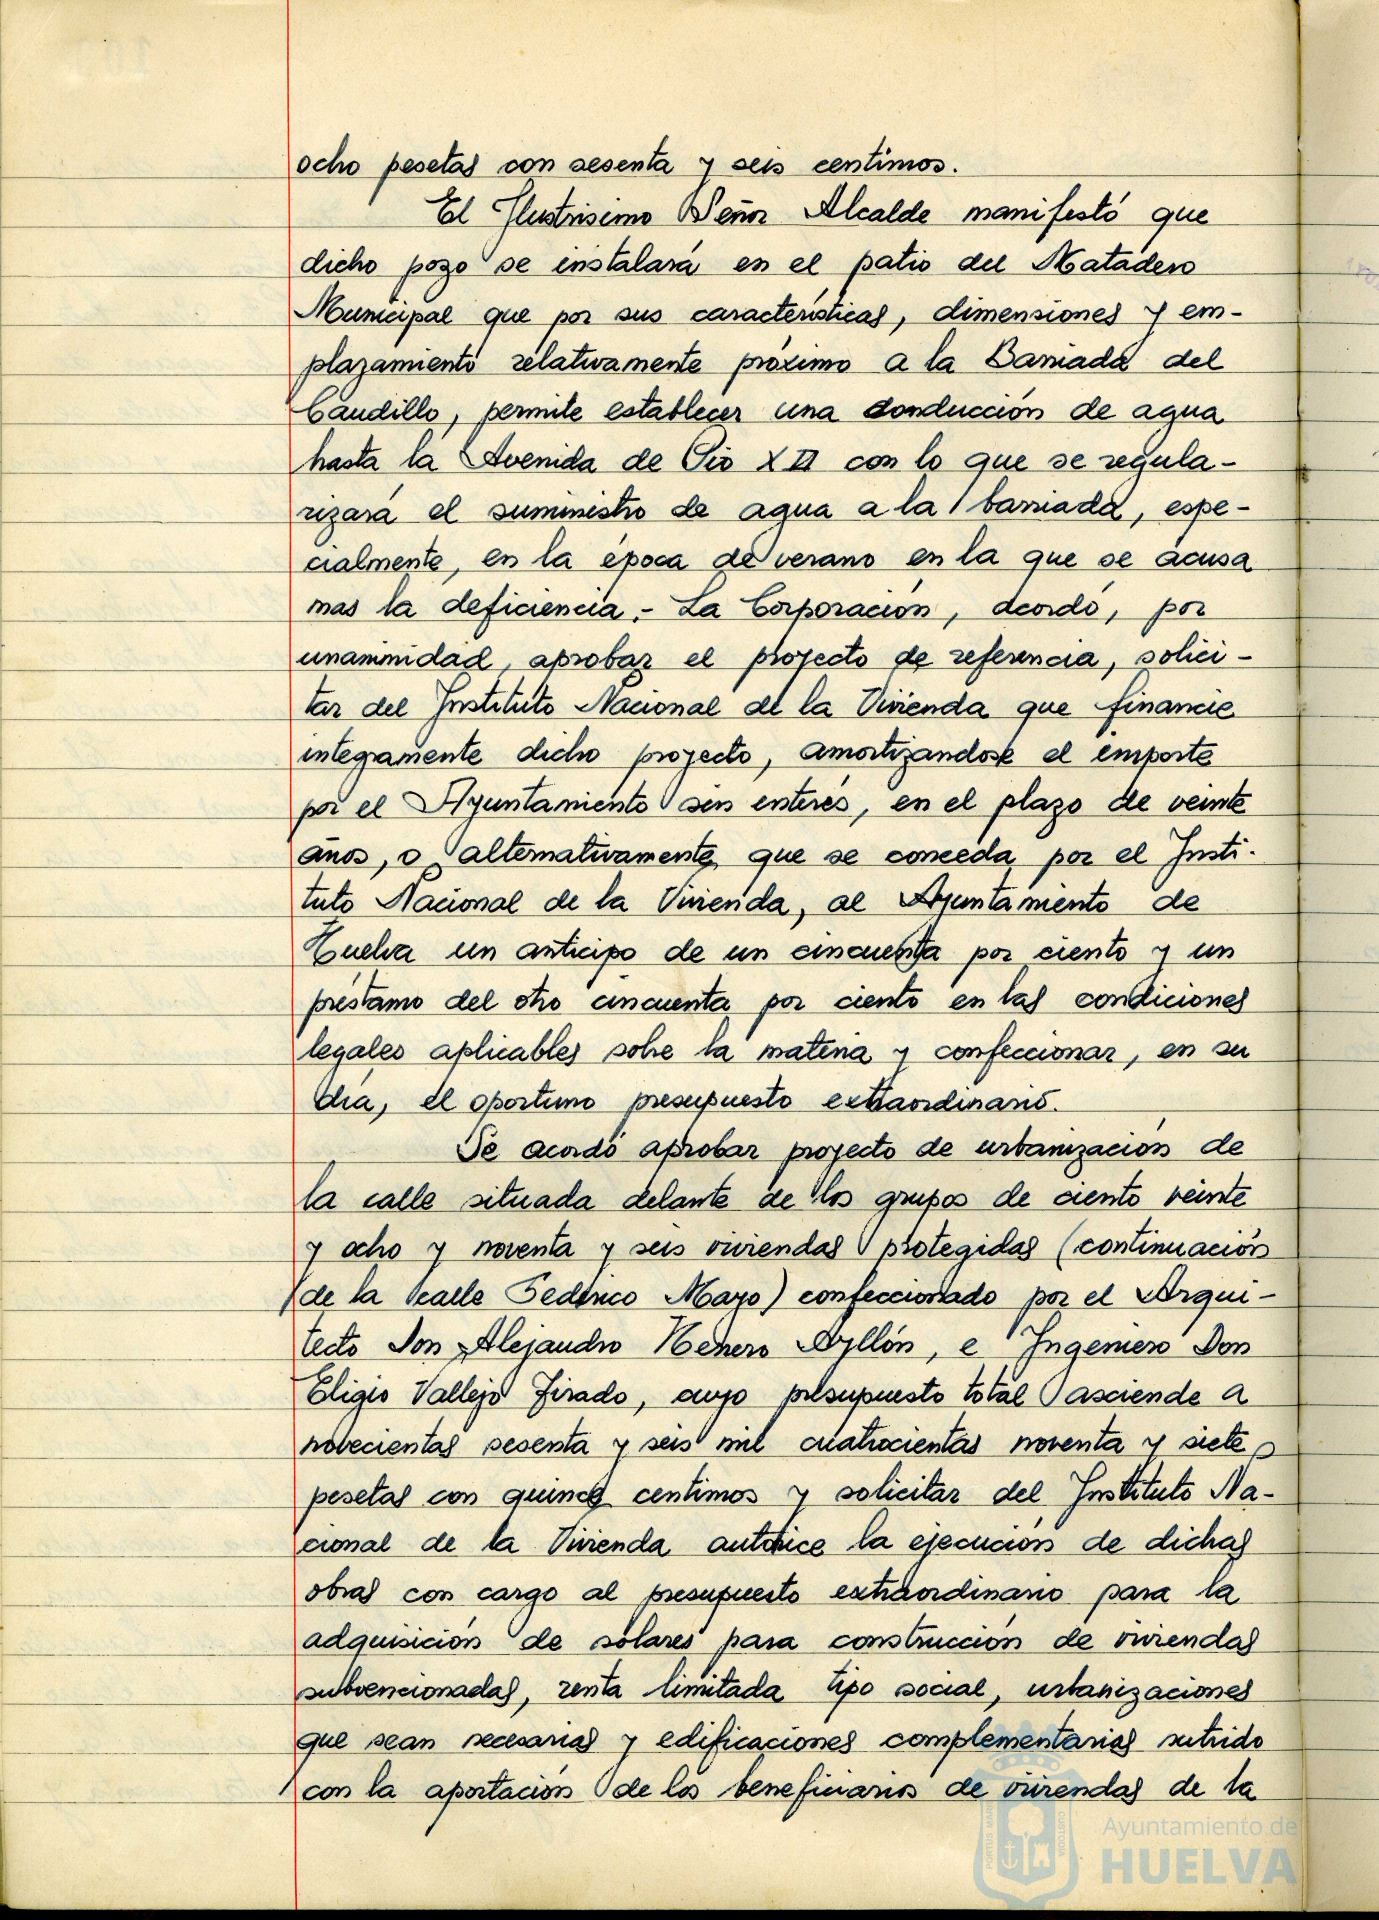 ocho pesetas con sesenta y seis centimos.
El Ilustrisimo Señor Alcalde manifestó que
dicho pozo se instalará en el patio del Matadero
Municipal que por sus características, dimensiones y em-
plazamiento relativamente próximo a la Barriada del
Caudillo, permite establecer una conducción de agua
hasta la Avenida de Pio XII con lo que se regula-
rizará el suministro de agua a la barriada, espe-
cialmente, en la época de verano en la que se acusa
mas la deficiencia.- La Corporación, acordó, por
unanimidad, aprobar el proyecto de referencia, solici-
tar del Instituto Nacional de la Vivienda que financie
integramente dicho proyecto, amortizandose el importe
por el Ayuntamiento sin interés, en el plazo de veinte
años, o alternativamente que se conceda por el Insti-
tuto Nacional de la Vivienda, al Ayuntamiento de
Huelva un anticipo de un cincuenta por ciento y un
préstamo del otro cincuenta por ciento en las condiciones
legales aplicables sobre la materia y confeccionar, en su
dia, el oportuno presupuesto extraordinario.
Se acordó aprobar proyecto de urbanización de
la calle situada delante de los grupos de ciento veinte
y ocho y noventa y seis viviendas protegidas (continuación
de la calle Federico Mayo) confeccionado por el Arqui-
tecto Don Alejandro Herrero Ayllón, e Ingeniero Don
Eligio Vallejo Tirado, cuyo presupuesto total asciende a
novecientas sesenta y seis mil cuatrocientas noventa y siete
pesetas con quince centimos y solicitar del Instituto Na-
cional de la Vivienda autorice la ejecución de dichas
obras con cargo al presupuesto extraordinario para la
adquisición de solares para construcción de viviendas
subvencionadas, renta limitada tipo social, urbanizaciones
que sean necesarias y edificaciones complementarias nutrido
con la aportación de los beneficiarios de viviendas de la
Ayuntamiento de
HUELVA